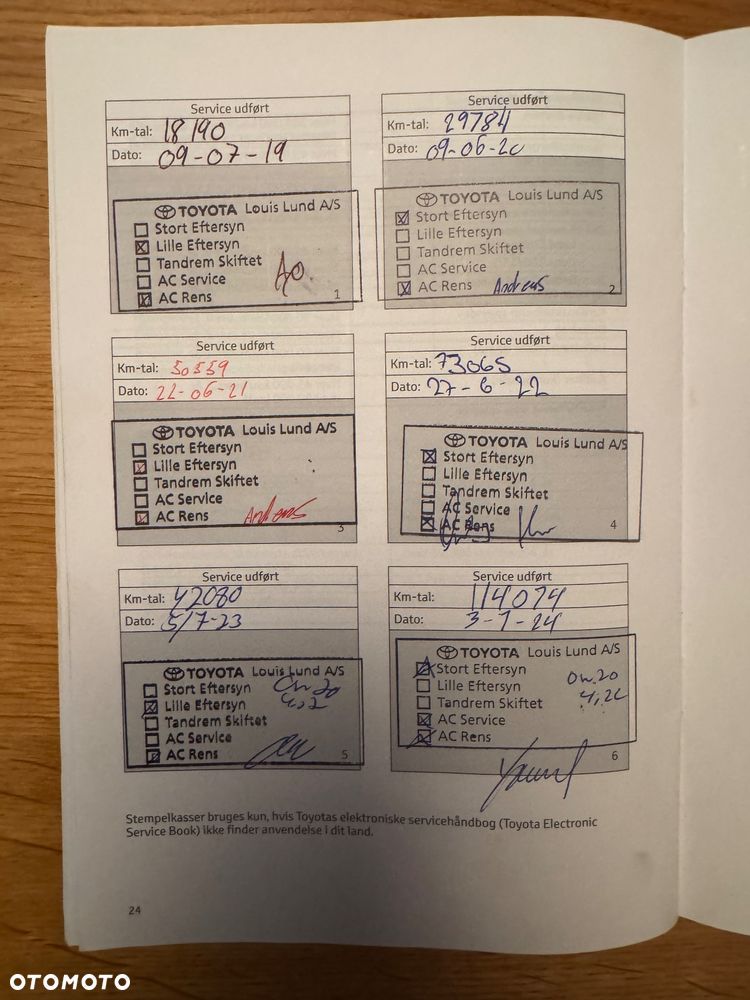 Service udført
Km-tal: 18190
Dato: 09-07-19
TOYOTA Louis Lund A/S
Stort Eftersyn
Lille Eftersyn
Tandrem Skiftet
AC Service
AC Rens
1
Service udført
Km-tal: 29784
Dato: 09-06-20
TOYOTA Louis Lund A/S
Stort Eftersyn
Lille Eftersyn
Tandrem Skiftet
AC Service
AC Rens Andreas
2
Service udført
Km-tal: 50559
Dato: 22-06-21
TOYOTA Louis Lund A/S
Stort Eftersyn
Lille Eftersyn
Tandrem Skiftet
AC Service
AC Rens Andreas
3
Service udført
Km-tal: 73065
Dato: 27-6-22
TOYOTA Louis Lund A/S
Stort Eftersyn
Lille Eftersyn
Tandrem Skiftet
AC Service
AC Rens
4
Service udført
Km-tal: 42080
Dato: 5/7-23
TOYOTA Louis Lund A/S
Stort Eftersyn
Lille Eftersyn
Tandrem Skiftet
AC Service
AC Rens
5
Service udført
Km-tal: 114074
Dato: 3-7-24
TOYOTA Louis Lund A/S
Stort Eftersyn
Lille Eftersyn 0w.20
Tandrem Skiftet
AC Service
AC Rens
6
Stempelkasser bruges kun, hvis Toyotas elektroniske servicehåndbog (Toyota Electronic
Service Book) ikke finder anvendelse i dit land.
24
OTOMOTO